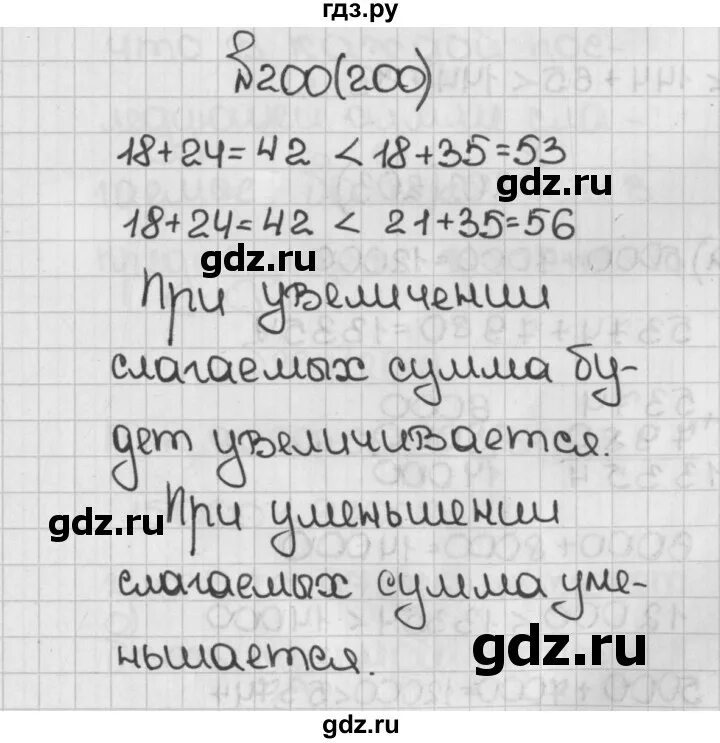 гдз.ру
№200(200)
18+24=42 < 18+35=53
gdz.ru
18+24=42 < 21+35=56
gdz.ru
При увеличении
слагаемых сумма бу-
дет увеличивается.
gdz.ru
При уменьшении
слагаемых сумма уме-
ньшается.
gdz.ru
gdz.ru